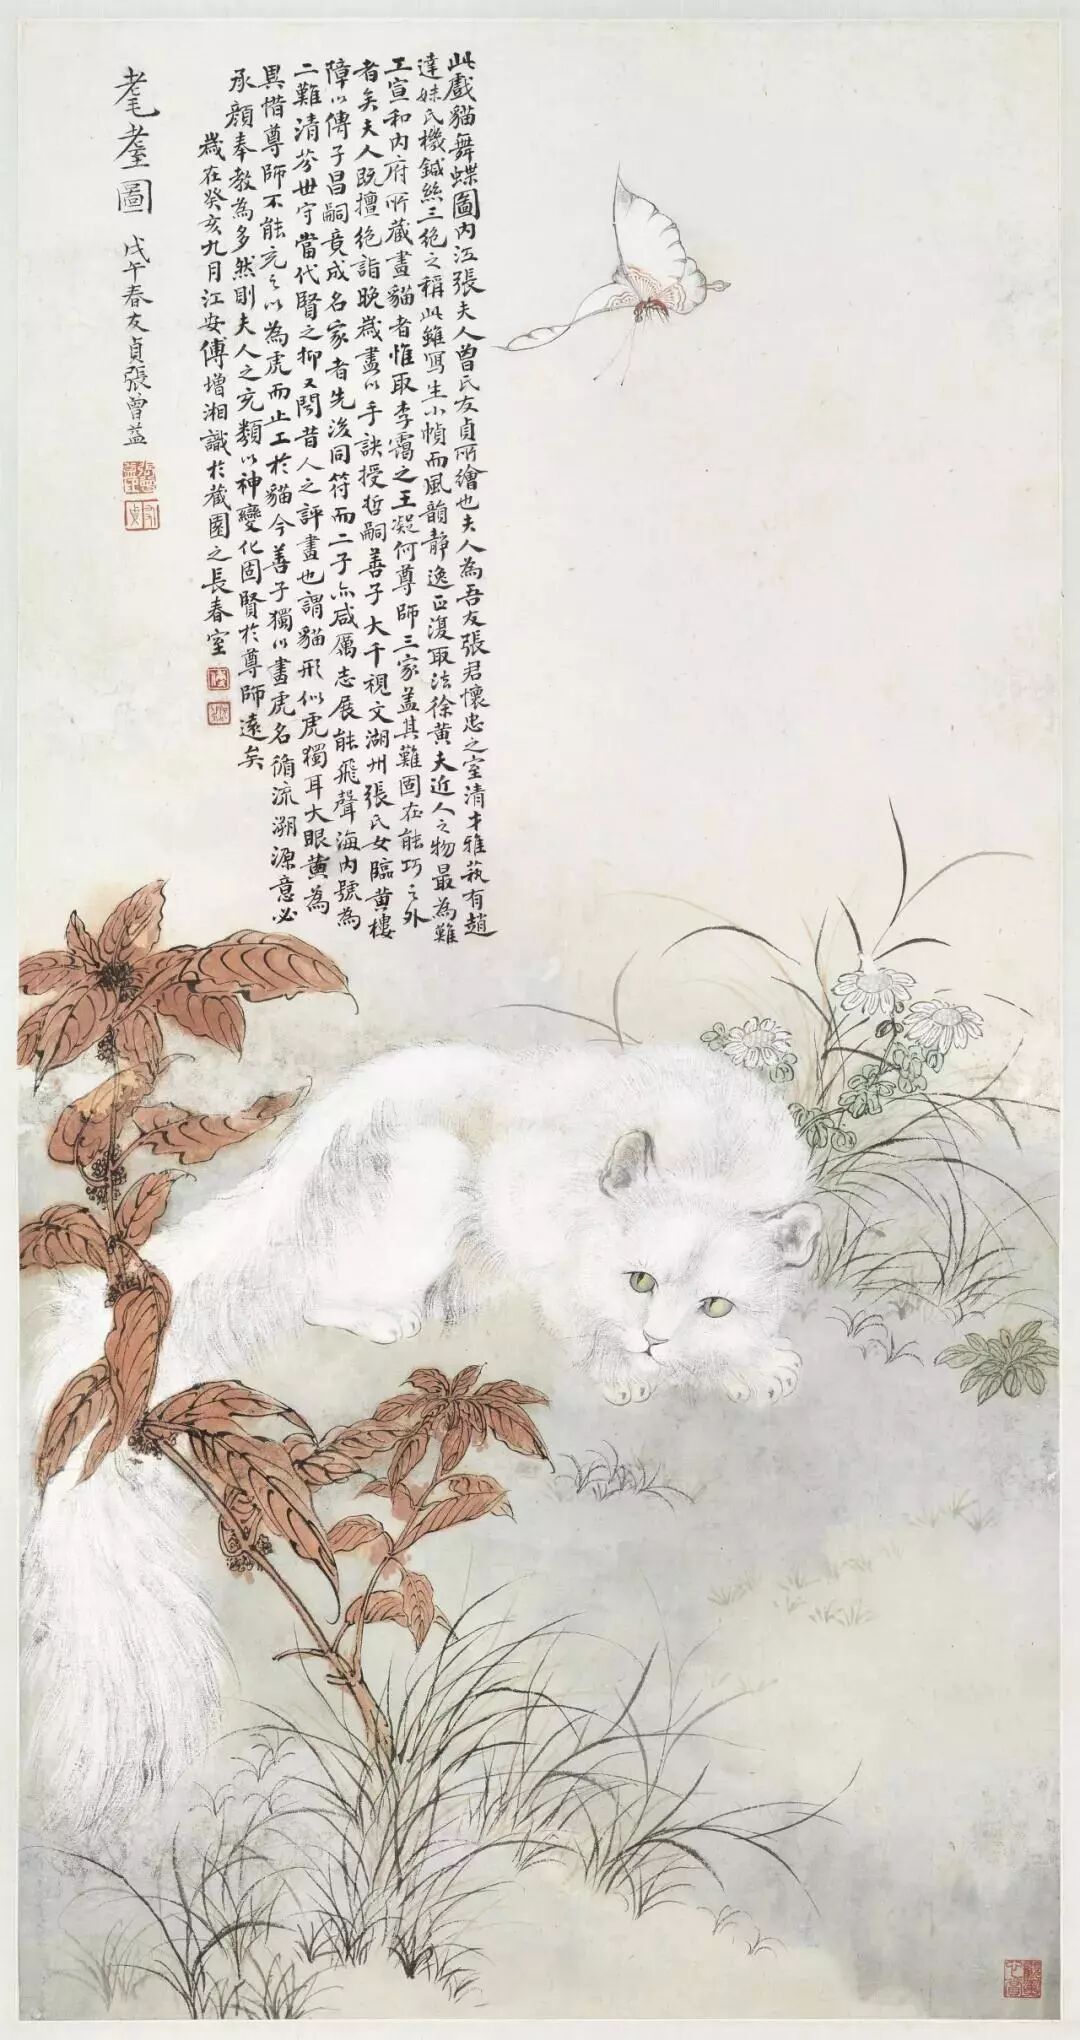 此戲貓舞蝶圖內江張夫人曾氏友貞所繪也夫人為吾友張君懷忠之室清才雅蓺有趙
達妹氏機鍼絲三絕之稱此雖寫生小幀而風韻靜逸正復取法徐黃夫近人之物最為難
工宣和內府所藏畫貓者惟取李靄之王凝何尊師三家蓋其難固在能巧之外
者矣夫人既擅絕詣晚歲盡以手訣授哲嗣善子大千視文湖州張氏女臨黃樓
障以傳子昌嗣竟成名家者先後同符而二子亦咸厲志展能飛聲海內號為
二難清芬世守當代賢之抑又聞昔人之評畫也謂貓形似虎獨耳大眼黃為
異惜尊師不能充之以為虎而止工於貓今善子獨以畫虎名循流溯源意必
承顏奉教為多然則夫人之充類以神變化固賢於尊師遠矣
歲在癸亥九月江安傅增湘識於藏園之長春室
耄耋圖
戊午春友貞張曾益